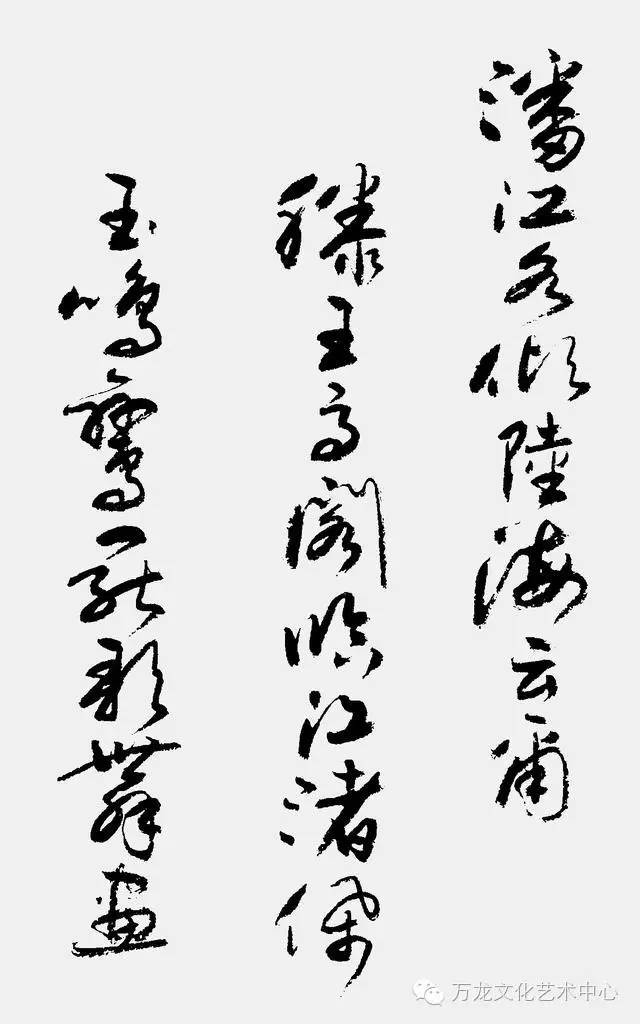 潘江各倾陸海云爾
滕王高阁临江渚佩
玉鳴鸞罢歌舞画
万龙文化艺术中心